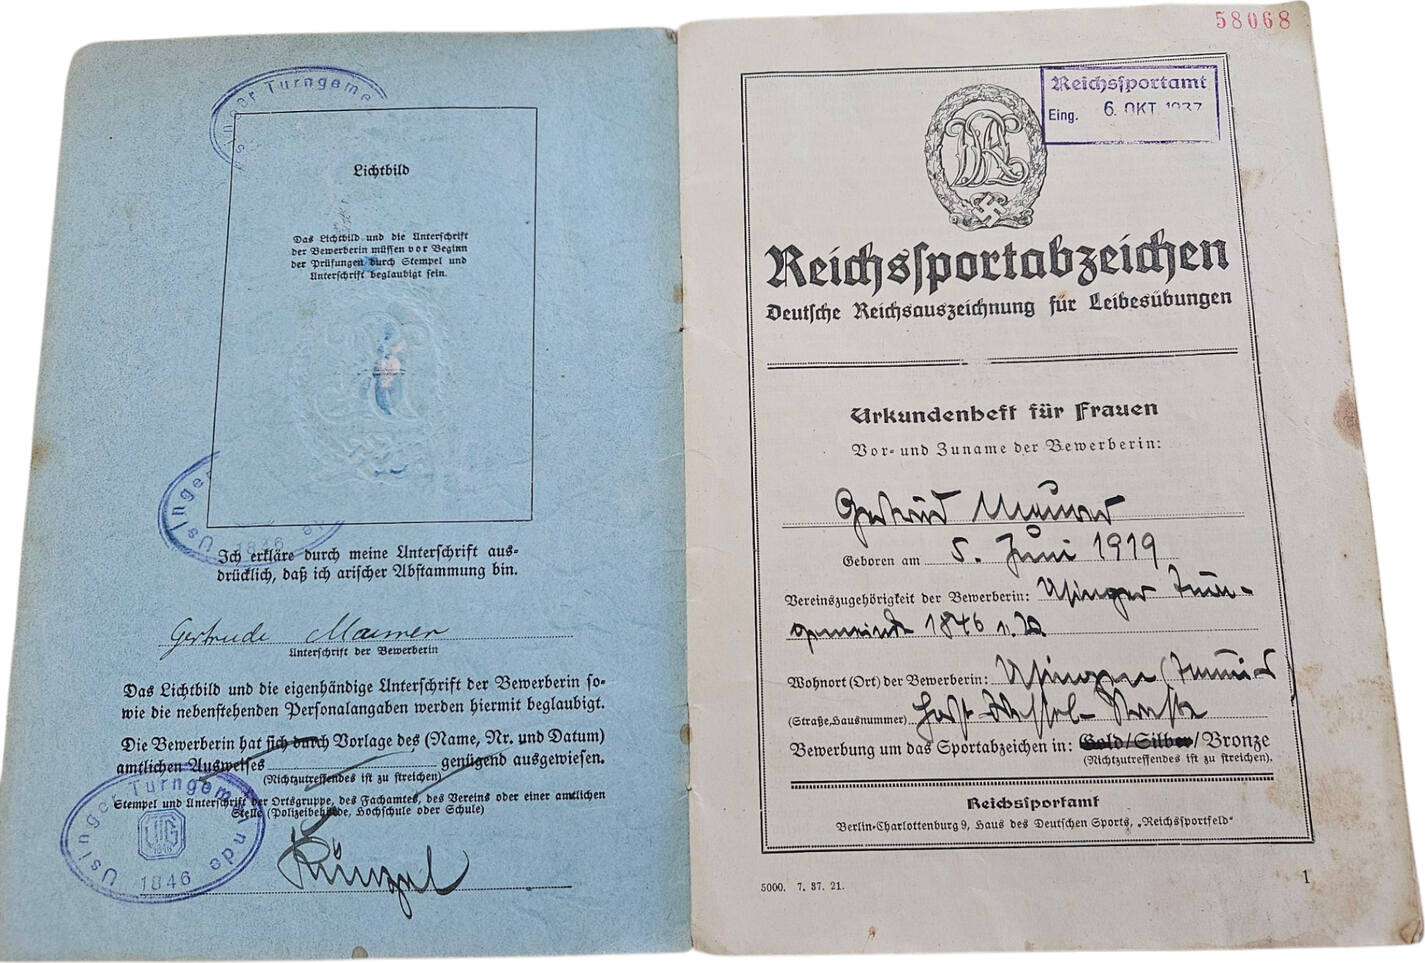 Usinger Turngeme
Lichtbild
Das Lichtbild und die Unterschrift
der Bewerberin müssen vor Beginn
der Prüfungen durch Stempel und
Unterschrift beglaubigt sein.
Usinger
1846
Ich erkläre durch meine Unterschrift aus-
drücklich, daß ich arischer Abstammung bin.
Gertrude
Unterschrift der Bewerberin
Das Lichtbild und die eigenhändige Unterschrift der Bewerberin so-
wie die nebenstehenden Personalangaben werden hiermit beglaubigt.
Die Bewerberin hat sich durch Vorlage des (Name, Nr. und Datum)
amtlichen Ausweises genügend ausgewiesen.
(Nichtzutreffendes ist zu streichen)
Stempel und Unterschrift der Ortsgruppe, des Fachamtes, des Vereins oder einer amtlichen
Stelle (Polizeibehörde, Hochschule oder Schule)
Usinger Turngemeinde
UTG
1846
1846
58068
Reichssportamt
Eing. 6. OKT. 1937
DRA
Reichssportabzeichen
Deutsche Reichsauszeichnung für Leibesübungen
Urkundenheft für Frauen
Vor- und Zuname der Bewerberin:
Gertrud Maurer
Geboren am 5. Juni 1919
Vereinszugehörigkeit der Bewerberin: Usinger Turn-
gemeinde 1846 e.V.
Wohnort (Ort) der Bewerberin: Usingen (Taunus
(Straße, Hausnummer) Horst-Wessel-Straße
Bewerbung um das Sportabzeichen in: Gold/Silber/Bronze
(Nichtzutreffendes ist zu streichen).
Reichssportamt
Berlin-Charlottenburg 9, Haus des Deutschen Sports, „Reichssportfeld“
5000. 7. 37. 21.
1